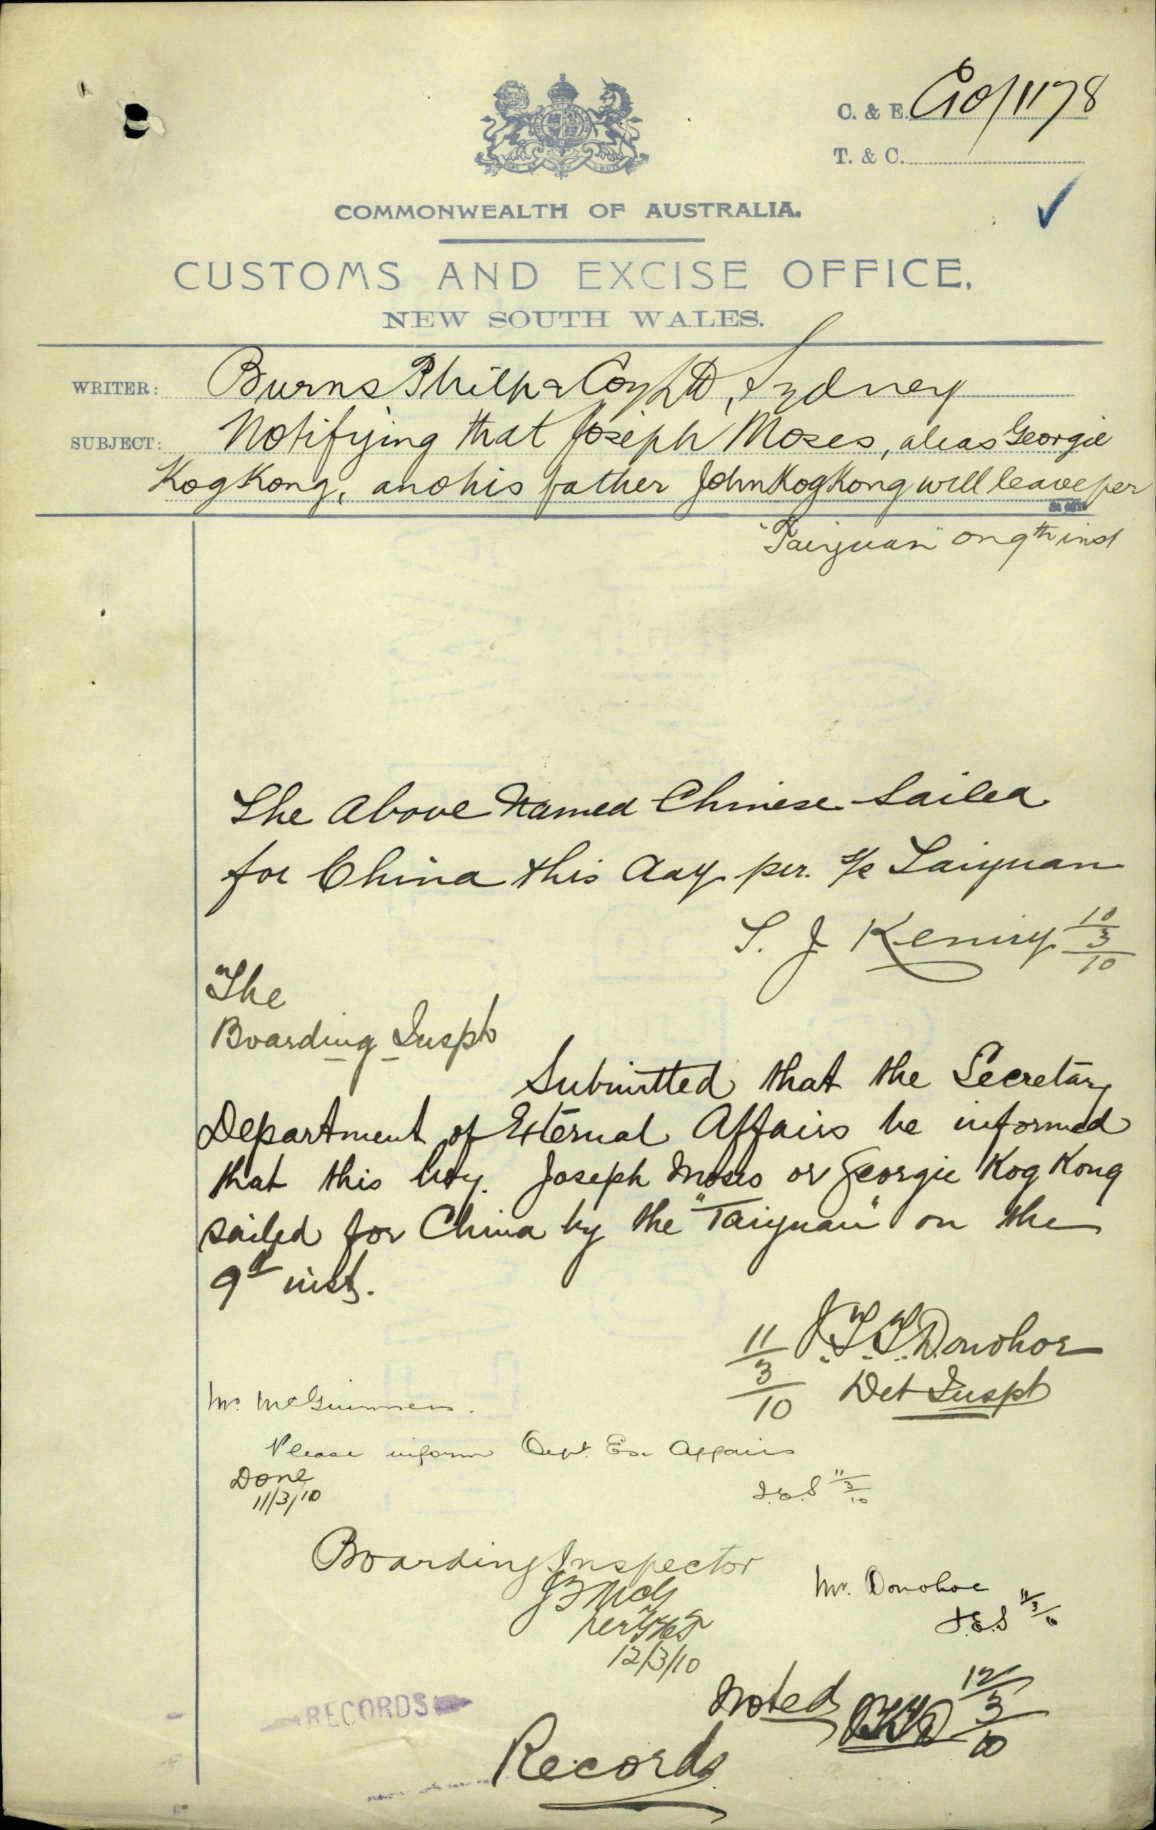 C. & E. G10/1178
T. & C.
COMMONWEALTH OF AUSTRALIA.
CUSTOMS AND EXCISE OFFICE,
NEW SOUTH WALES.
WRITER: Burns Philp & Coy Ltd, Sydney
SUBJECT: Notifying that Joseph Moses, alias Georgie
Kog Kong, and his father John Kog Kong will leave per
"Taiyuan" on 9th inst
The Above Named Chinese Sailed
for China this day per. s/s Taiyuan
T. J. Kenny 10/3/10
The
Boarding Inspt
Submitted that the Secretary
Department of External Affairs be informed
that this boy. Joseph Moses or Georgie Kog Kong
sailed for China by the "Taiyuan" on the
9th inst.
11/3/10 J.T.T. Donohoe
Det Inspt
Mr. McGuinness.
Please inform Dept. Ex. Affairs
Done
11/3/10
11/3/10
Boarding Inspector
per
12/3/10
Mr. Donohoe
11/3/10
Noted 12/3/10
RECORDS
Records